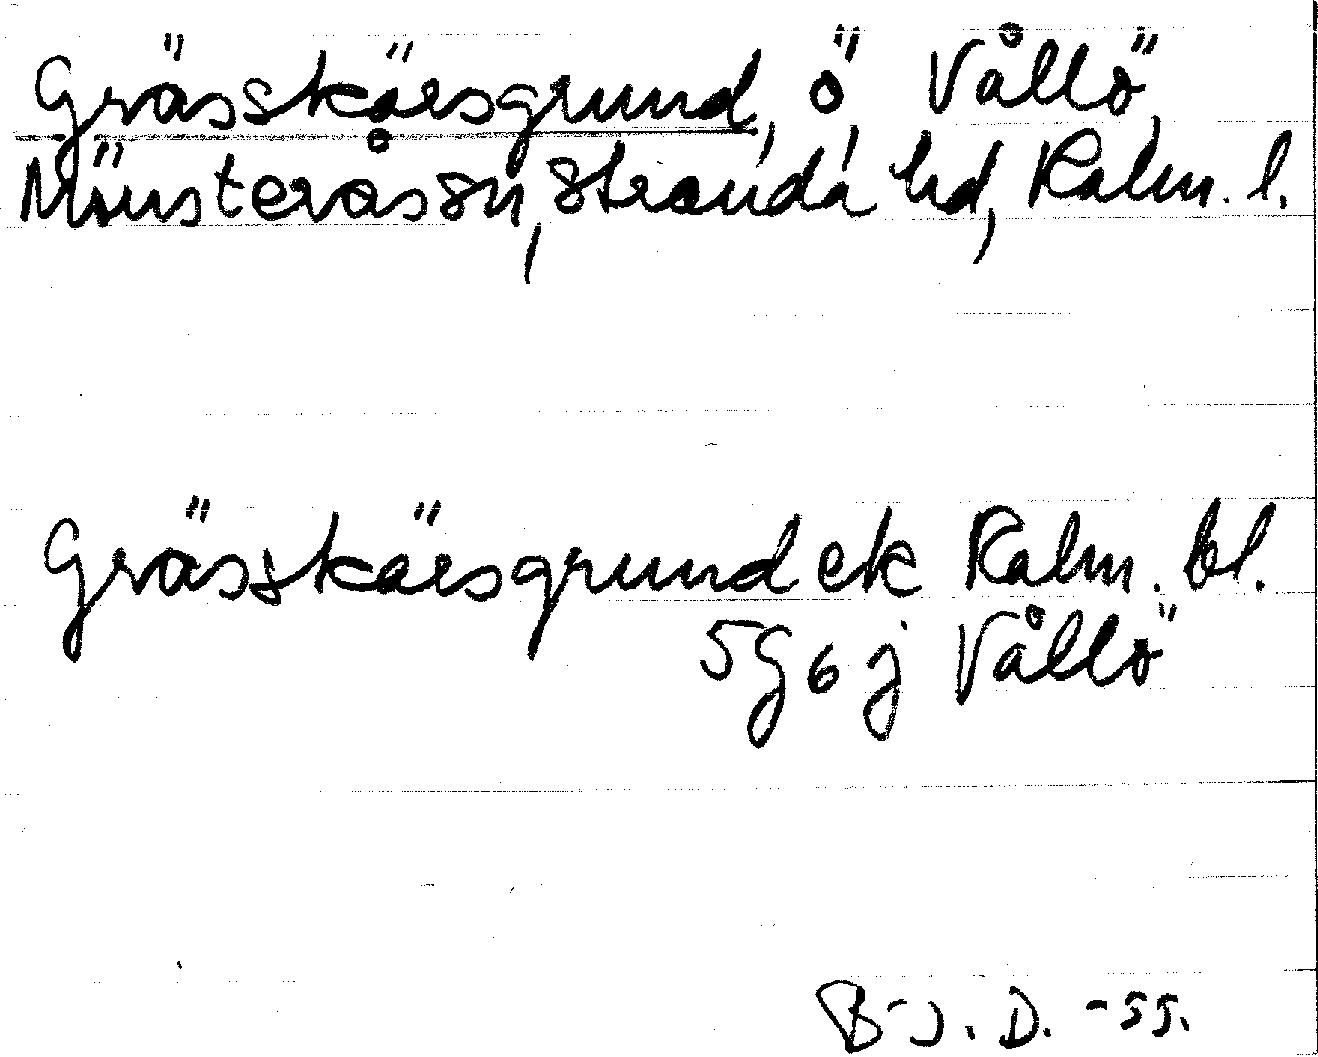 Grässkärsgrund, ö Vållö,
Mönsterås sn, Stranda hd, Kalm. l.
Grässkärsgrund ek Kalm. bl.
5G6j Vållö
B-J. D. -55.